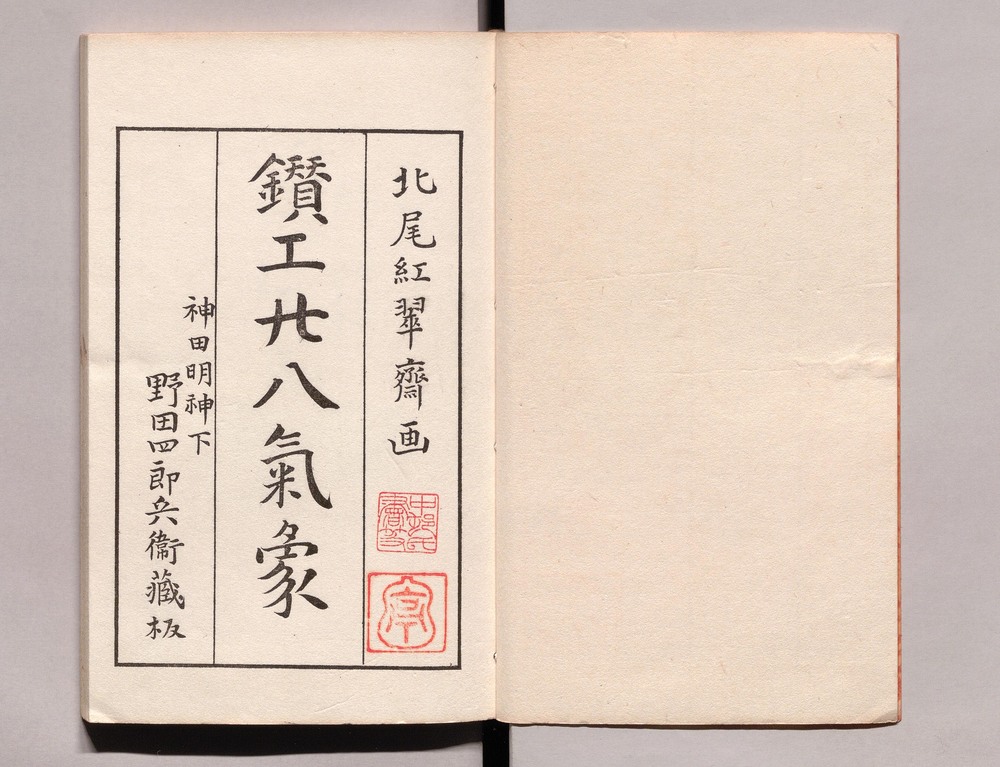 北尾紅翠齋画
鑚工廿八氣象
神田明神下
野田四郎兵衞藏板